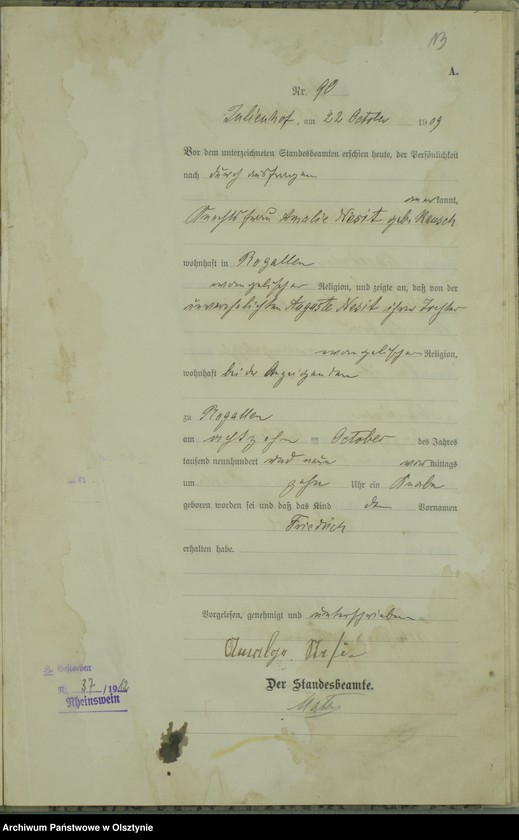 A.
Nr. 90
Julienhof, am 22 October 1909
Vor dem unterzeichneten Standesbeamten erschien heute, der Persönlichkeit
nach durch Ausfragen
anerkannt,
Knechtsfrau Amalie Nesit geb. Rausch
wohnhaft in Rogallen
evangelischer Religion, und zeigte an, daß von der
unverehelichten Auguste Nesit ihrer Tochter
evangelischer Religion,
wohnhaft bei der Anzeigenden
zu Rogallen
am achtzehn ten October des Jahres
tausend neunhundert und neun vormittags
um zehn Uhr ein Knabe
geboren worden sei und daß das Kind den Vornamen
Friedrich
erhalten habe.
Vorgelesen, genehmigt und unterschrieben
Der Standesbeamte.
Gestorben
Nr. 37 / 1912
Rheinswein
Archiwum Państwowe w Olsztynie